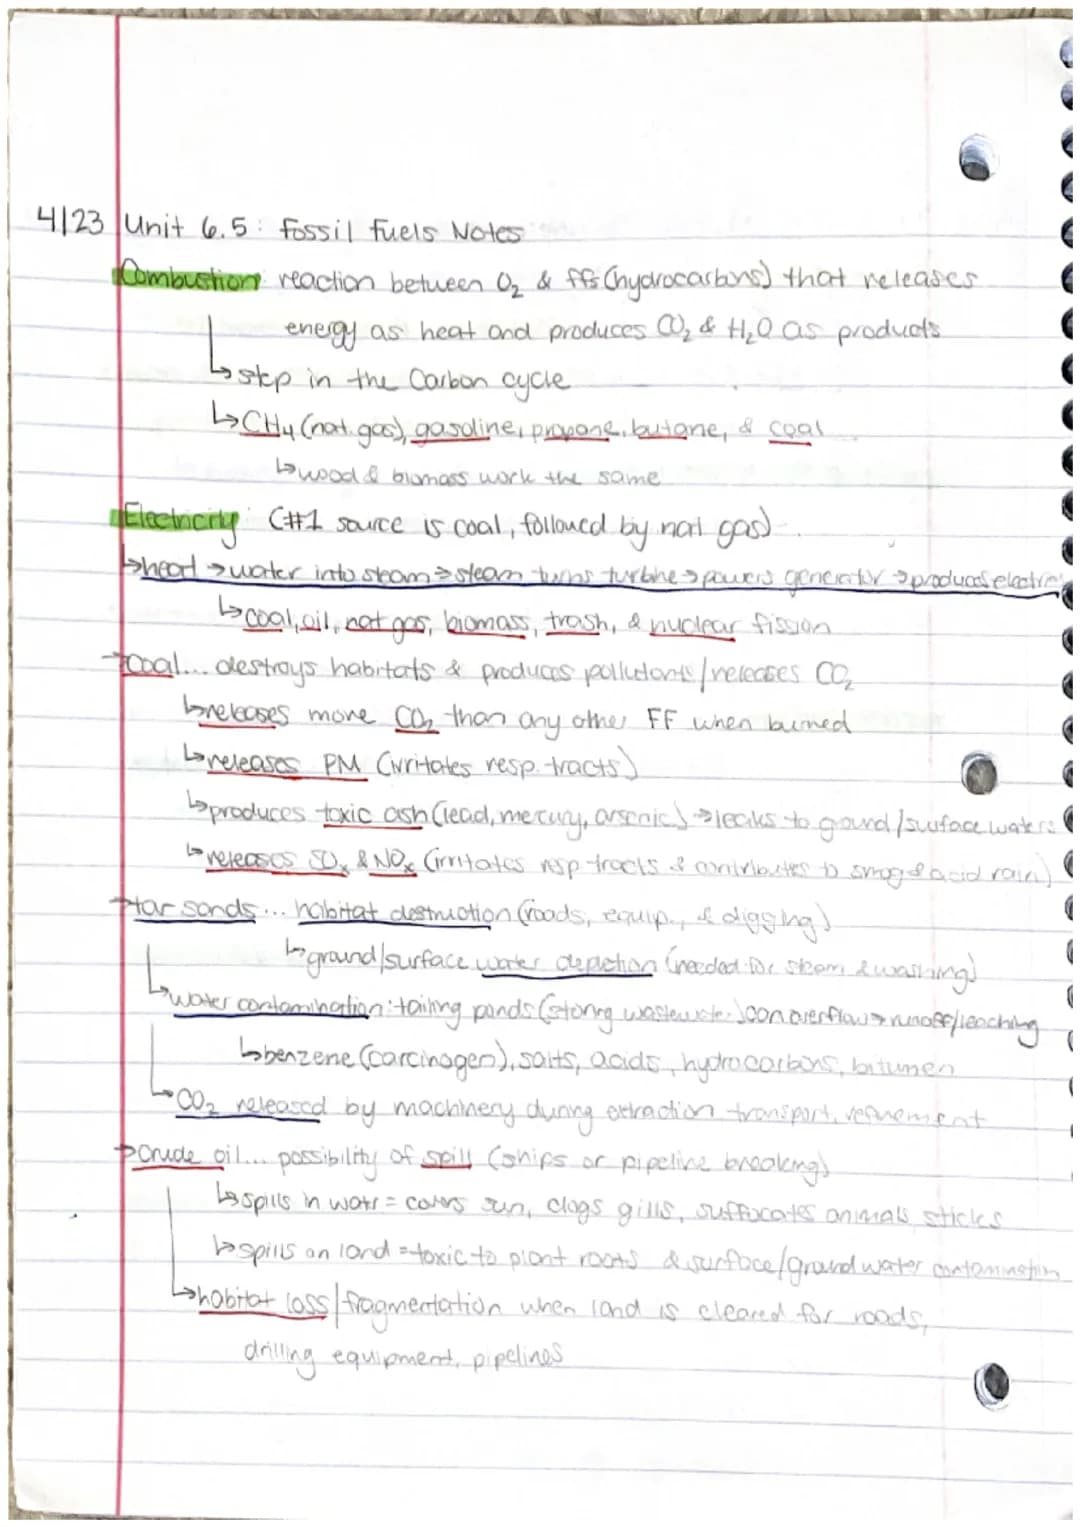 4/23 Unit 6.5: Fossil Fuels Notes
Combustion: reaction between O₂ & FFs (hydrocarbons) that releases
energy as heat and produces CO₂ & H₂O as products
↳ step in the Carbon cycle
↳ CH₄ (nat. gas), gasoline, propane, butane, & coal
↳ wood & biomass work the same
Electricity: (#1 source is coal, followed by nat gas)
↳ heat → water into steam → steam turns turbine → powers generator → produces electric
↳ coal, oil, nat gas, biomass, trash, & nuclear fission
→ coal... destroys habitats & produces pollutants/releases CO₂
↳ releases more CO₂ than any other FF when burned
↳ releases PM (irritates resp. tracts)
↳ produces toxic ash (lead, mercury, arsenic) → leaks to ground/surface waters
↳ releases SOₓ & NOₓ (irritates resp tracts & contributes to smog & acid rain)
→ tar sands... habitat destruction (roads, equip., & digging)
↳ ground/surface water depletion (needed for steam & washing)
↳ water contamination: tailing ponds (storing wastewater) can overflow → runoff/leaching
↳ benzene (carcinogen), salts, acids, hydrocarbons, bitumen
↳ CO₂ released by machinery during extraction, transport, refinement
→ crude oil... possibility of spill (ships or pipeline breaking)
↳ spills in water = covers sun, clogs gills, suffocates animals, sticks
↳ spills on land = toxic to plant roots & surface/ground water contamination
↳ habitat loss/fragmentation when land is cleared for roads,
drilling equipment, pipelines